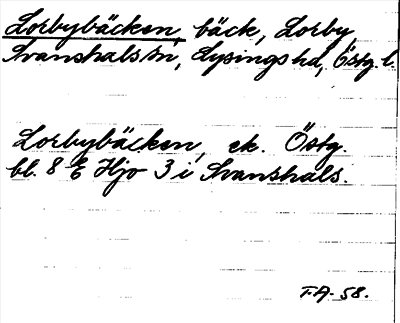 Lorbybäcken, bäck, Lorby,
Svanshals sn, Lysings hd, Östg. l.
Lorbybäcken, ek. Östg.
bl. 8 E Hjo 3 i Svanshals.
T.A. 58.